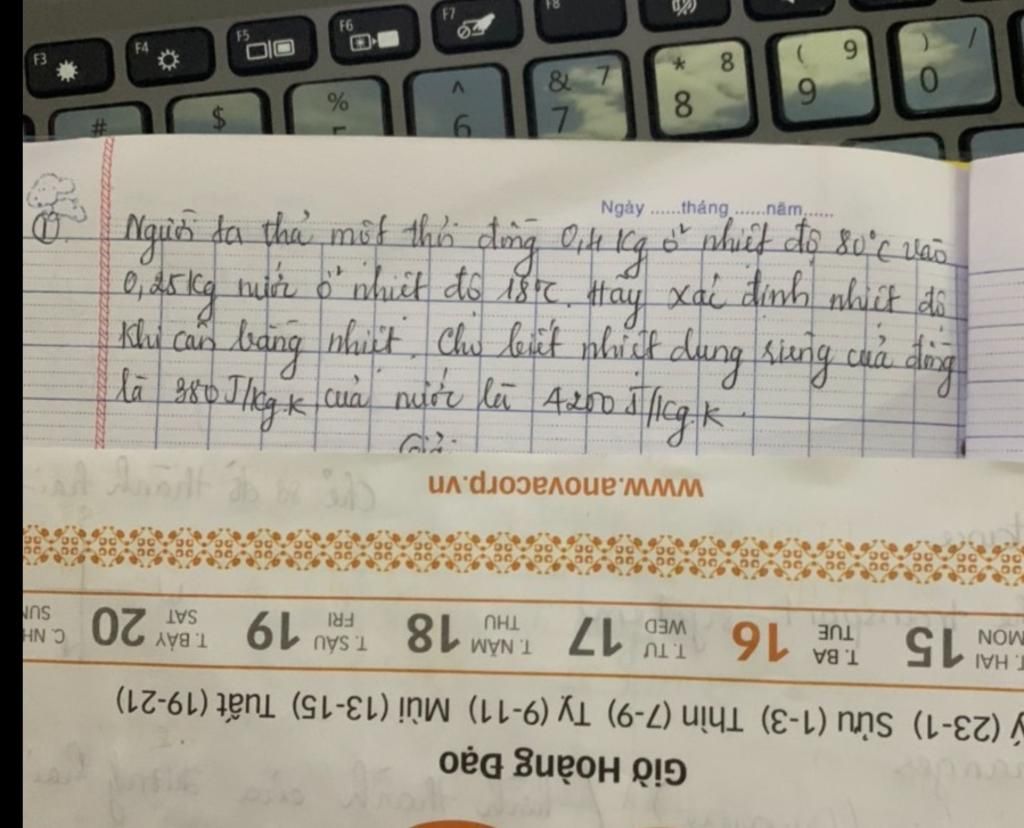 F3
F4
F5
F6
F7
F8
#
$
%
^
6
& 7
7
* 8
8
( 9
9
) /
0
Ngày ......tháng ......năm......
① Người ta thả một thỏi đồng 0,4 Kg ở nhiệt độ 80°C vào
0,25Kg nước ở nhiệt độ 18°C. Hãy xác định nhiệt độ
Khi cân bằng nhiệt. Cho biết nhiệt dung riêng của đồng
là 380 J/kg.K, của nước là 4200 J/kg.K.
www.anovacorp.vn
C. NH
SUN
20
T. BẢY
SAT
19
T. SÁU
FRI
18
T. NĂM
THU
17
T. TƯ
WED
16
T. BA
TUE
15
T. HAI
MON
(23-1) Sửu (1-3) Thìn (7-9) Tỵ (9-11) Mùi (13-15) Tuất (19-21)
Giờ Hoàng Đạo